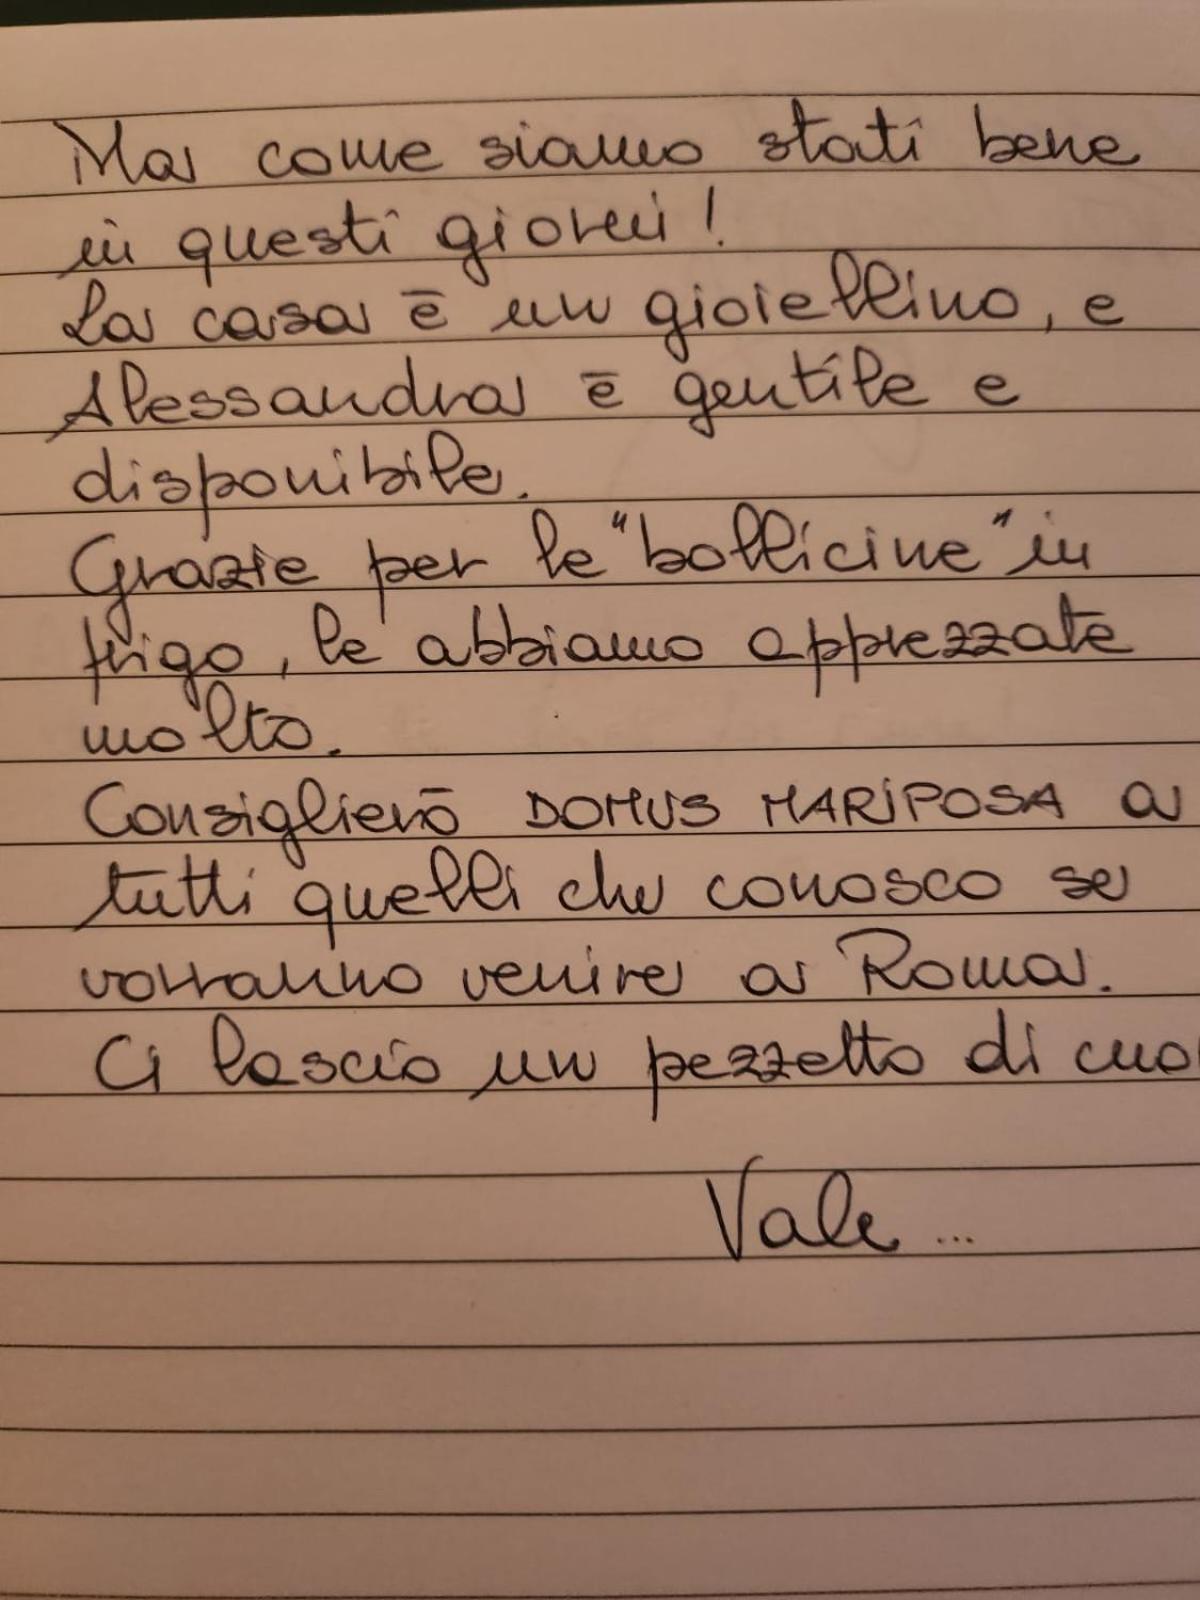 Ma come siamo stati bene
in questi giorni!
La casa è un gioiellino, e
Alessandra è gentile e
disponibile.
Grazie per le "bollicine" in
frigo, le abbiamo apprezzate
molto.
Consiglierò DOMUS MARIPOSA a
tutti quelli che conosco se
vorranno venire a Roma.
Ci lascio un pezzetto di cuo
Vale...